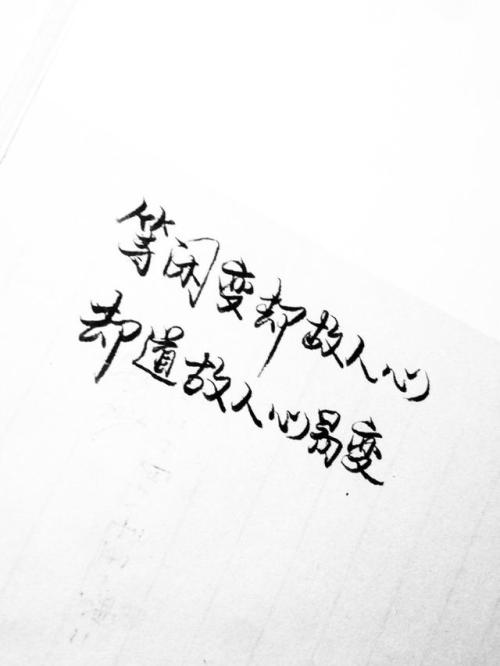 等闲变却故人心
却道故人心易变